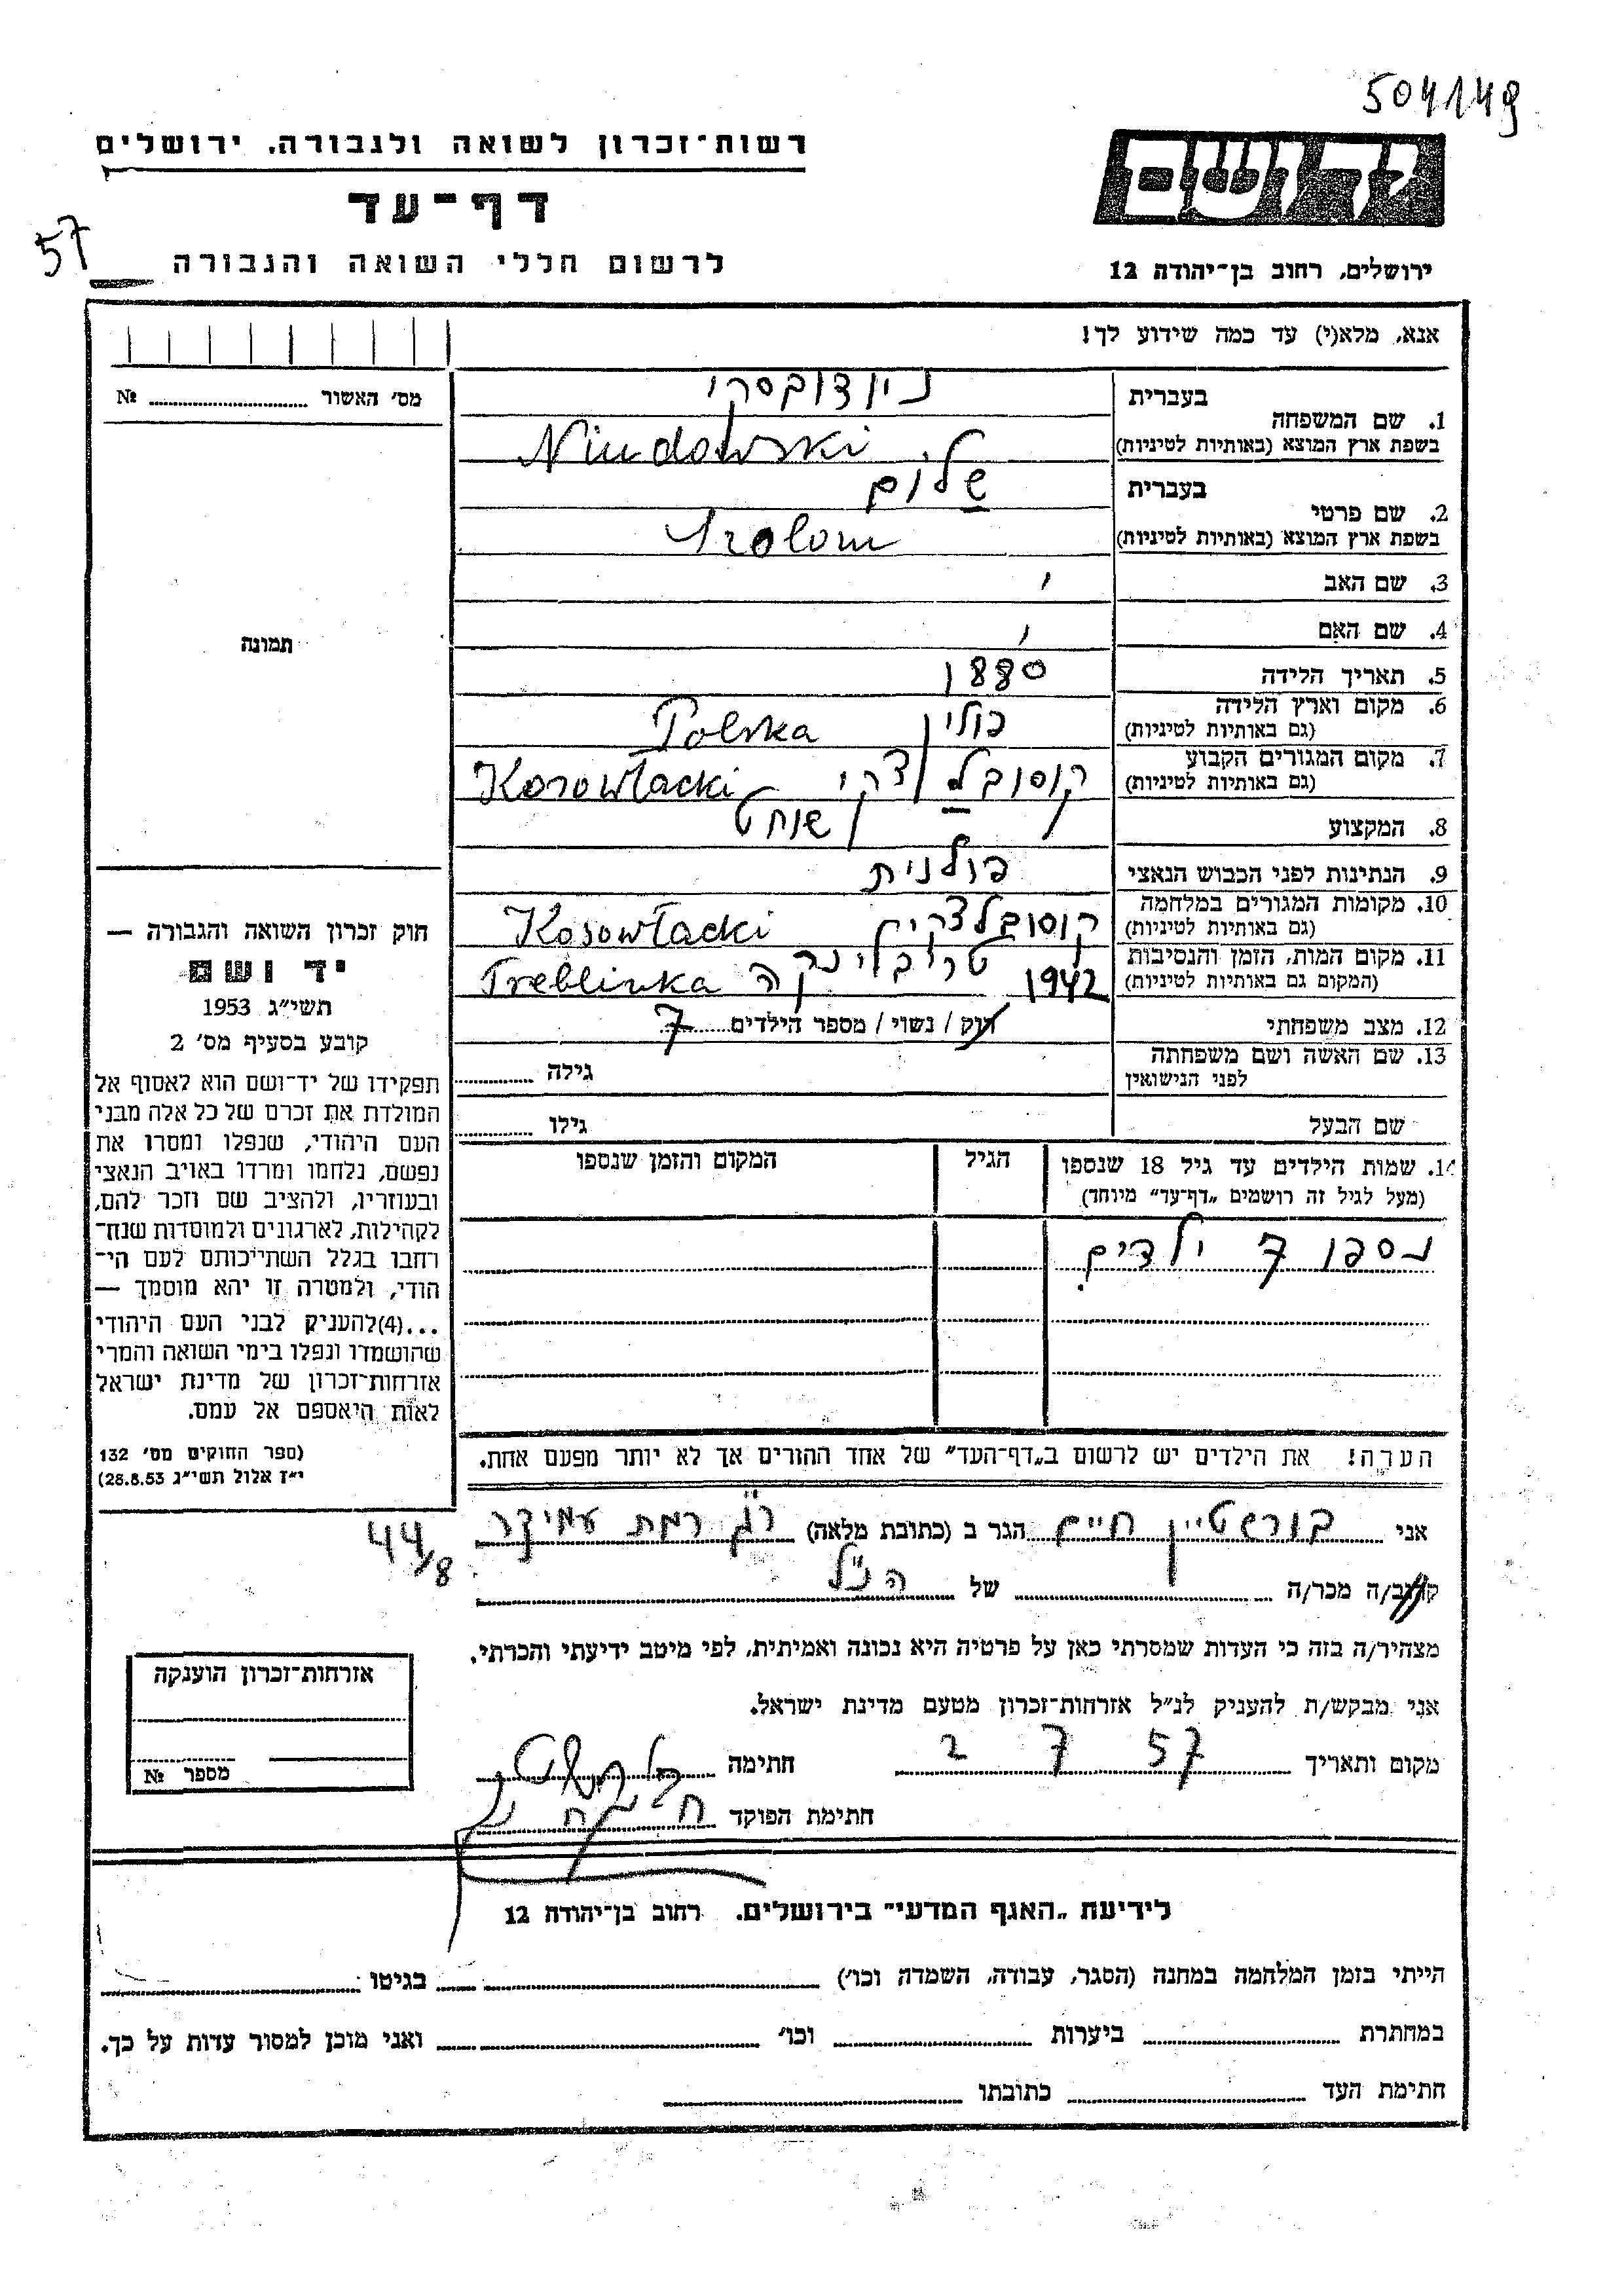 504149
ידושם
רשות־זכרון לשואה ולגבורה, ירושלים
דף־עד
57
לרשום חללי השואה והגבורה
ירושלים, רחוב בן־יהודה 12
אנא, מלא(י) עד כמה שידוע לך!
מס׳ האשור № 
1. שם המשפחה
בעברית
ניודובסקי
בשפת ארץ המוצא (באותיות לטיניות)
Niudowski
2. שם פרטי
בעברית
שלום
בשפת ארץ המוצא (באותיות לטיניות)
Szolom
3. שם האב
4. שם האם
5. תאריך הלידה 1880
6. מקום וארץ הלידה (גם באותיות לטיניות) פולין Polska
7. מקום המגורים הקבוע (גם באותיות לטיניות) קוסוב לצקי Kosowłacki
8. המקצוע שוחט
9. הנתינות לפני הכבוש הנאצי פולנית
10. מקומות המגורים במלחמה (גם באותיות לטיניות) קוסובלצקי Kosowłacki
11. מקום המות, הזמן והנסיבות (המקום גם באותיות לטיניות) 1942 טריבלינקה Treblinka
12. מצב משפחתי רוק / נשוי / מספר הילדים 7
13. שם האשה ושם משפחתה לפני הנישואין גילה
שם הבעל גילו
14. שמות הילדים עד גיל 18 שנספו
(מעל לגיל זה רושמים „דף־עד” מיוחד)
הגיל
המקום והזמן שנספו
נספו 7 ילדים
הערה! את הילדים יש לרשום ב„דף־העד” של אחד ההורים אך לא יותר מפעם אחת.
תמונה
חוק זכרון השואה והגבורה —
יד ושם
תשי״ג 1953
קובע בסעיף מס׳ 2
תפקידו של יד־ושם הוא לאסוף אל
המולדת את זכרם של כל אלה מבני
העם היהודי, שנפלו ומסרו את
נפשם, נלחמו ומרדו באויב הנאצי
ובעוזריו, ולהציב שם וזכר להם,
לקהילות, לארגונים ולמוסדות שנח־
רחבו בגלל השתייכותם לעם הי־
הודי, ולמטרה זו יהא מוסמך —
...(4)להעניק לבני העם היהודי
שהושמדו ונפלו בימי השואה והמרי
אזרחות־זכרון של מדינת ישראל
לאות היאספם אל עמם.
(ספר החוקים מס׳ 132
י״ז אלול תשי״ג 28.8.53)
אני בוראטיין חיים הגר ב (כתובת מלאה) ר״ג רמת עמידר
44/8
קרוב/ה מכר/ה של הנ״ל
מצהיר/ה בזה כי העדות שמסרתי כאן על פרטיה היא נכונה ואמיתית, לפי מיטב ידיעתי והכרתי.
אני מבקש/ת להעניק לנ״ל אזרחות־זכרון מטעם מדינת ישראל.
מקום ותאריך 57 7 2 חתימה
חתימת הפוקד
אזרחות־זכרון הוענקה
מספר №
לידיעת „האגף המדעי” בירושלים. רחוב בן־יהודה 12
הייתי בזמן המלחמה במחנה (הסגר, עבודה, השמדה וכו׳) בגיטו
במחתרת ביערות וכו׳ ואני מוכן למסור עדות על כך.
חתימת העד כתובתו